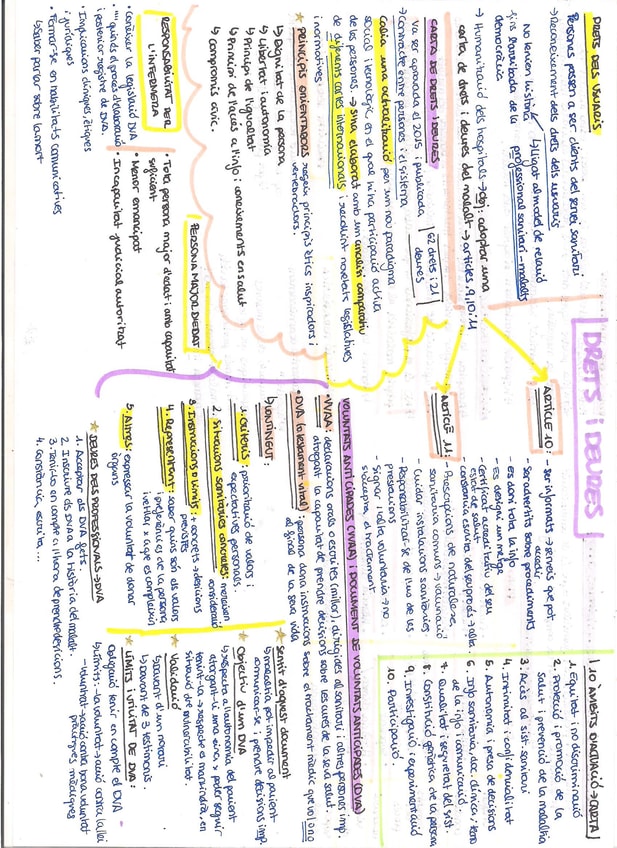 DRETS I DEURES
DRETS DELS USUARIS
Persones passen a ser clients del servei sanitari
→ Reconeixement dels drets dels usuaris
No tenien història
fins l'arribada de la
democràcia
↳ lligat al model de relació
professional sanitari-malalts
→ Humanització dels hospitals → obj: adoptar una
carta de drets i deures del malalt → articles 9, 10 i 11
CARTA DE DRETS I DEURES
va ser aprovada el 2015 i publicada
62 drets i 21
deures
→ contracte entre persones i el sistema
Calia una actualització per un nou paradigma
social i tecnològic, en el que hi ha participació activa
de les persones. → s'ha elaborat amb un anàlisi comparatiu
de diferents cartes internacionals i recollint novetats legislatives
i normatives.
★ PRINCIPIS ORIENTADORS segueix principis ètics inspiradors i
vertebradors.
↳ Dignitat de la persona
↳ Llibertat i autonomia
↳ Principi de l'igualtat
↳ Principi de l'accés a l'info i coneixements en salut
↳ compromís cívic.
RESPONSABILITAT PER
L'INFERMERA
• Conèixer la legislació DVA
• quin és el procés d'elaboració
i posterior registre de DVA.
• Implicacions clíniques, ètiques
i jurídiques
• Formar-se en habilitats comunicatives
↳ saber parlar sobre la mort
PERSONA MAJOR D'EDAT
• Tota persona major d'edat i amb capacitat
suficient
• Menor emancipat
• Incapacitat judicial autoritzat
ARTICLE 10:
- ser informats → serveis que pot
accedir
- ser advertits sobre procediments
- es doni tota la info
- Es designi un metge
- certificat acreditatiu del seu
estat de salut
- constància escrita del seu procés → alta
ARTICLE 11:
- Prescripcions de naturalesa
sanitària comuns → vacunació
- Cuidar instal·lacions sanitàries
- Responsabilitzar-se de l'ús de les
prestacions
- signar l'alta voluntària → no
s'accepta el tractament
10 ÀMBITS D'ACTUACIÓ → CARTA
1. Equitat i no discriminació
2. Protecció i promoció de la
salut i prevenció de la malaltia
3. Accés al sist. sanitari
4. Intimitat i confidencialitat
5. Autonomia i presa de decisions
6. Info sanitària, doc. clínica,
de la info i comunicació.
7. Qualitat i seguretat del sist.
8. Constitució genètica de la persona
9. Investigació i experimentació
10. Participació.
VOLUNTATS ANTICIPADES (VVAA) I DOCUMENT DE VOLUNTATS ANTICIPADES (DVA)
• VVAA: declaracions orals o escrites (millor), dirigides al sanitari i altres persones imp.
atorgant la capacitat de prendre decisions sobre les cures de la seva salut.
• DVA (o testament vital): persona dona instruccions sobre el tractament mèdic que vol / o no
al final de la seva vida
↳ CONTINGUT:
1. CRITERIS: priorització de valors i
expectatives personals
2. Situacions sanitàries concretes: mereixen
consideració
3. Instruccions o límits: + concrets → decisions
previstes
4. Representant: saber quins són els valors
i preferències de la persona
i vetllar x a que es compleixin
5. Altres: expressar la voluntat de donar
òrgans
★ DEURES DELS PROFESSIONALS → DVA
1. Acceptar els DVA fets.
2. Inscriure els DVA a la història del malalt
3. Tenir-lo en compte a l'hora de prendre decisions.
4. Constància escrita...
★ Sentit d'aquest document
↳ malaltia pot impedir al pacient
comunicar-se i prendre decisions imp.
★ Objectiu d'un DVA
↳ Respecta a l'autonomia del pacient
atorgant-li una eina, x poder seguir
tenint-la → respecte es mantindrà, en
situació de vulnerabilitat.
★ Validació
↳ davant d'un notari
↳ davant de 3 testimonis
★ LÍMITS I UTILITAT DE DVA:
Obligació tenir en compte el DVA
↳ Límits: - la voluntat → acció contra la llei
- voluntat → acció contra bona voluntat
pràctiques mèdiques